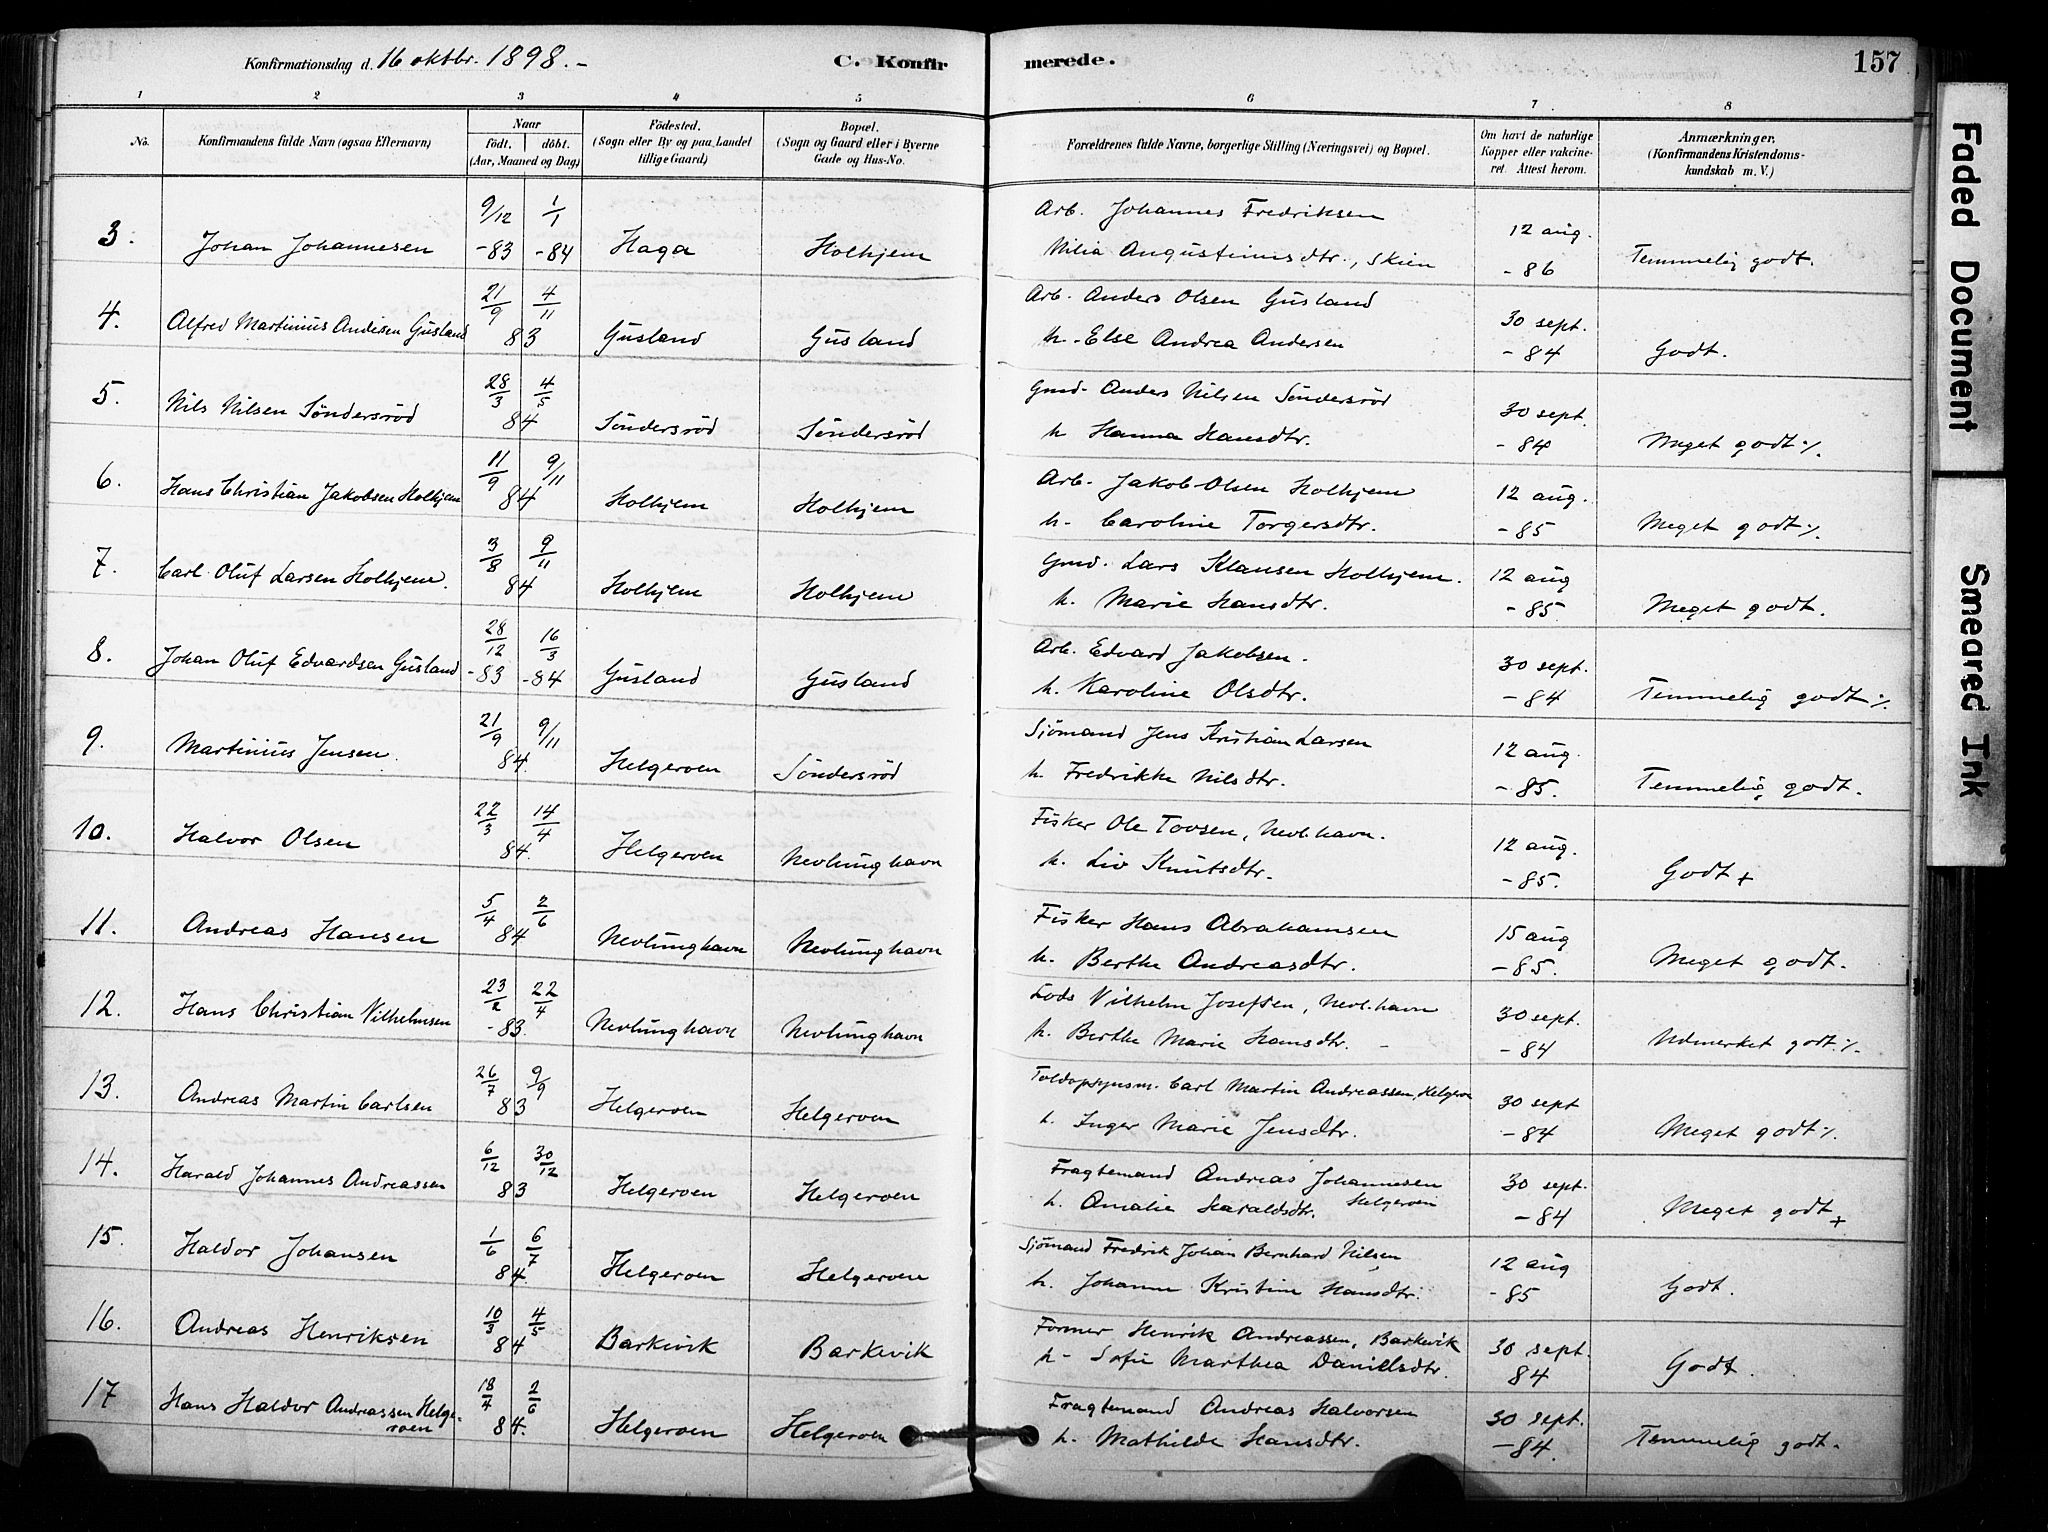 Konfirmationsdag d. 16 oktbr. 1898. – C. Konfir merede. 157
1 2 3 4 5 6 7 8
No. Konfirmandens fulde Navn (ogsaa Efternavn) Naar födt. döbt. (Aar, Maaned og Dag) Födested. (Sogn eller By og paa Landet tillige Gaard) Bopæl. (Sogn og Gaard eller i Byerne Gade og Hus-No. Forældrenes fulde Navne, borgerlige Stilling (Næringsvei) og Bopæl. Om havt de naturlige Kopper eller vakcineret. Attest herom. Anmærkninger. (Konfirmandens Kristendomskundskab m. V.)
3. Johan Johannesen 9/12 -83 1/1 -84 Haga Holhjem Arb. Johannes Fredriksen 12 aug. Temmelig godt.
Milia Augustinusdtr., Skien - 86
4. Alfred Martinius Andersen Gusland 21/9 4/11 83 Gusland Gusland Arb. Anders Olsen Gusland 30 sept. Godt.
h. Else Andrea Andersen - 84
5. Nils Nilsen Söndersröd 28/3 4/5 84 Söndersröd Söndersröd Gmd. Anders Nilsen Söndersröd 30 sept. Meget godt ./.
h Hanna Hansdtr. - 84
6. Hans Christian Jakobsen Holhjem 11/9 9/11 84 Holhjem Holhjem Arb. Jakob Olsen Holhjem 12 aug. Meget godt ./.
h. Caroline Torgersdtr. - 85
7. Carl Oluf Larsen Holhjem. 3/8 9/11 84 Holhjem Holhjem Gmd. Lars Klausen Holhjem. 12 aug Meget godt.
h. Marie Hansdtr. - 85
8. Johan Oluf Edvardsen Gusland 28/12 -83 16/3 -84 Gusland Gusland Arb. Edvard Jakobsen. 30 sept. Temmelig godt ./.
h. Karoline Olsdtr. - 84
9. Martinius Jensen. 21/9 9/11 84. Helgeroen Söndersröd Sjömand Jens Kristian Larsen 12 aug. Temmelig godt.
h. Fredrikke Nilsdtr. - 85.
10. Halvor Olsen 22/3 14/4 84. Helgeroen Nevlunghavn Fisker Ole Tovsen, Nevl.havn. 12 aug. Godt +
h. Liv Knutsdtr. - 85.
11. Andreas Hansen 5/4 2/6 84 Nevlunghavn Nevlunghavn Fisker Hans Abrahamsen 15 aug Meget godt.
h. Berthe Andreasdtr. - 85.
12. Hans Christian Vilhelmsen 23/2 22/4 -83. Nevlunghavn Nevlunghavn Lods Vilhelm Josefsen, Nevl.havn 30 sept. Udmerket godt ./.
h. Berthe Marie Hansdtr. - - 84
13. Andreas Martin Carlsen 26/7 9/9 83 Helgeroen Helgeroen Toldopsynsm. Carl Martin Andreassen, Helgeroe 30 sept Meget godt ./.
h. Inger Marie Jensdtr. - 84
14. Harald Johannes Andreassen 6/12 30/12 83 Helgeroen Helgeroen Fragtemand Andreas Johannesen 30 sept. Meget godt +
h. Amalie Haraldsdtr. Helgeroen - 84
15. Haldor Johansen 1/6 6/7 84. Helgeroen Helgeroen Sjömand Fredrik Johan Bernhard Nilsen 12 aug Godt.
h. Johanne Kristine Hansdtr. - 85
16. Andreas Henriksen 10/3 4/5 84 Barkevik Barkevik Former Henrik Andreassen, Barkevik 30 sept. Godt.
h- Sofie Marthea Danielsdtr. 84
17 Hans Haldor Andreassen Helgeroen 18/4 2/6 84. Helgeroen Helgeroen Fragtemand Andreas Halvorsen 30 sept. Temmelig godt.
h. Mathilde Hansdtr. - 84.
Faded Document
Smeared Ink